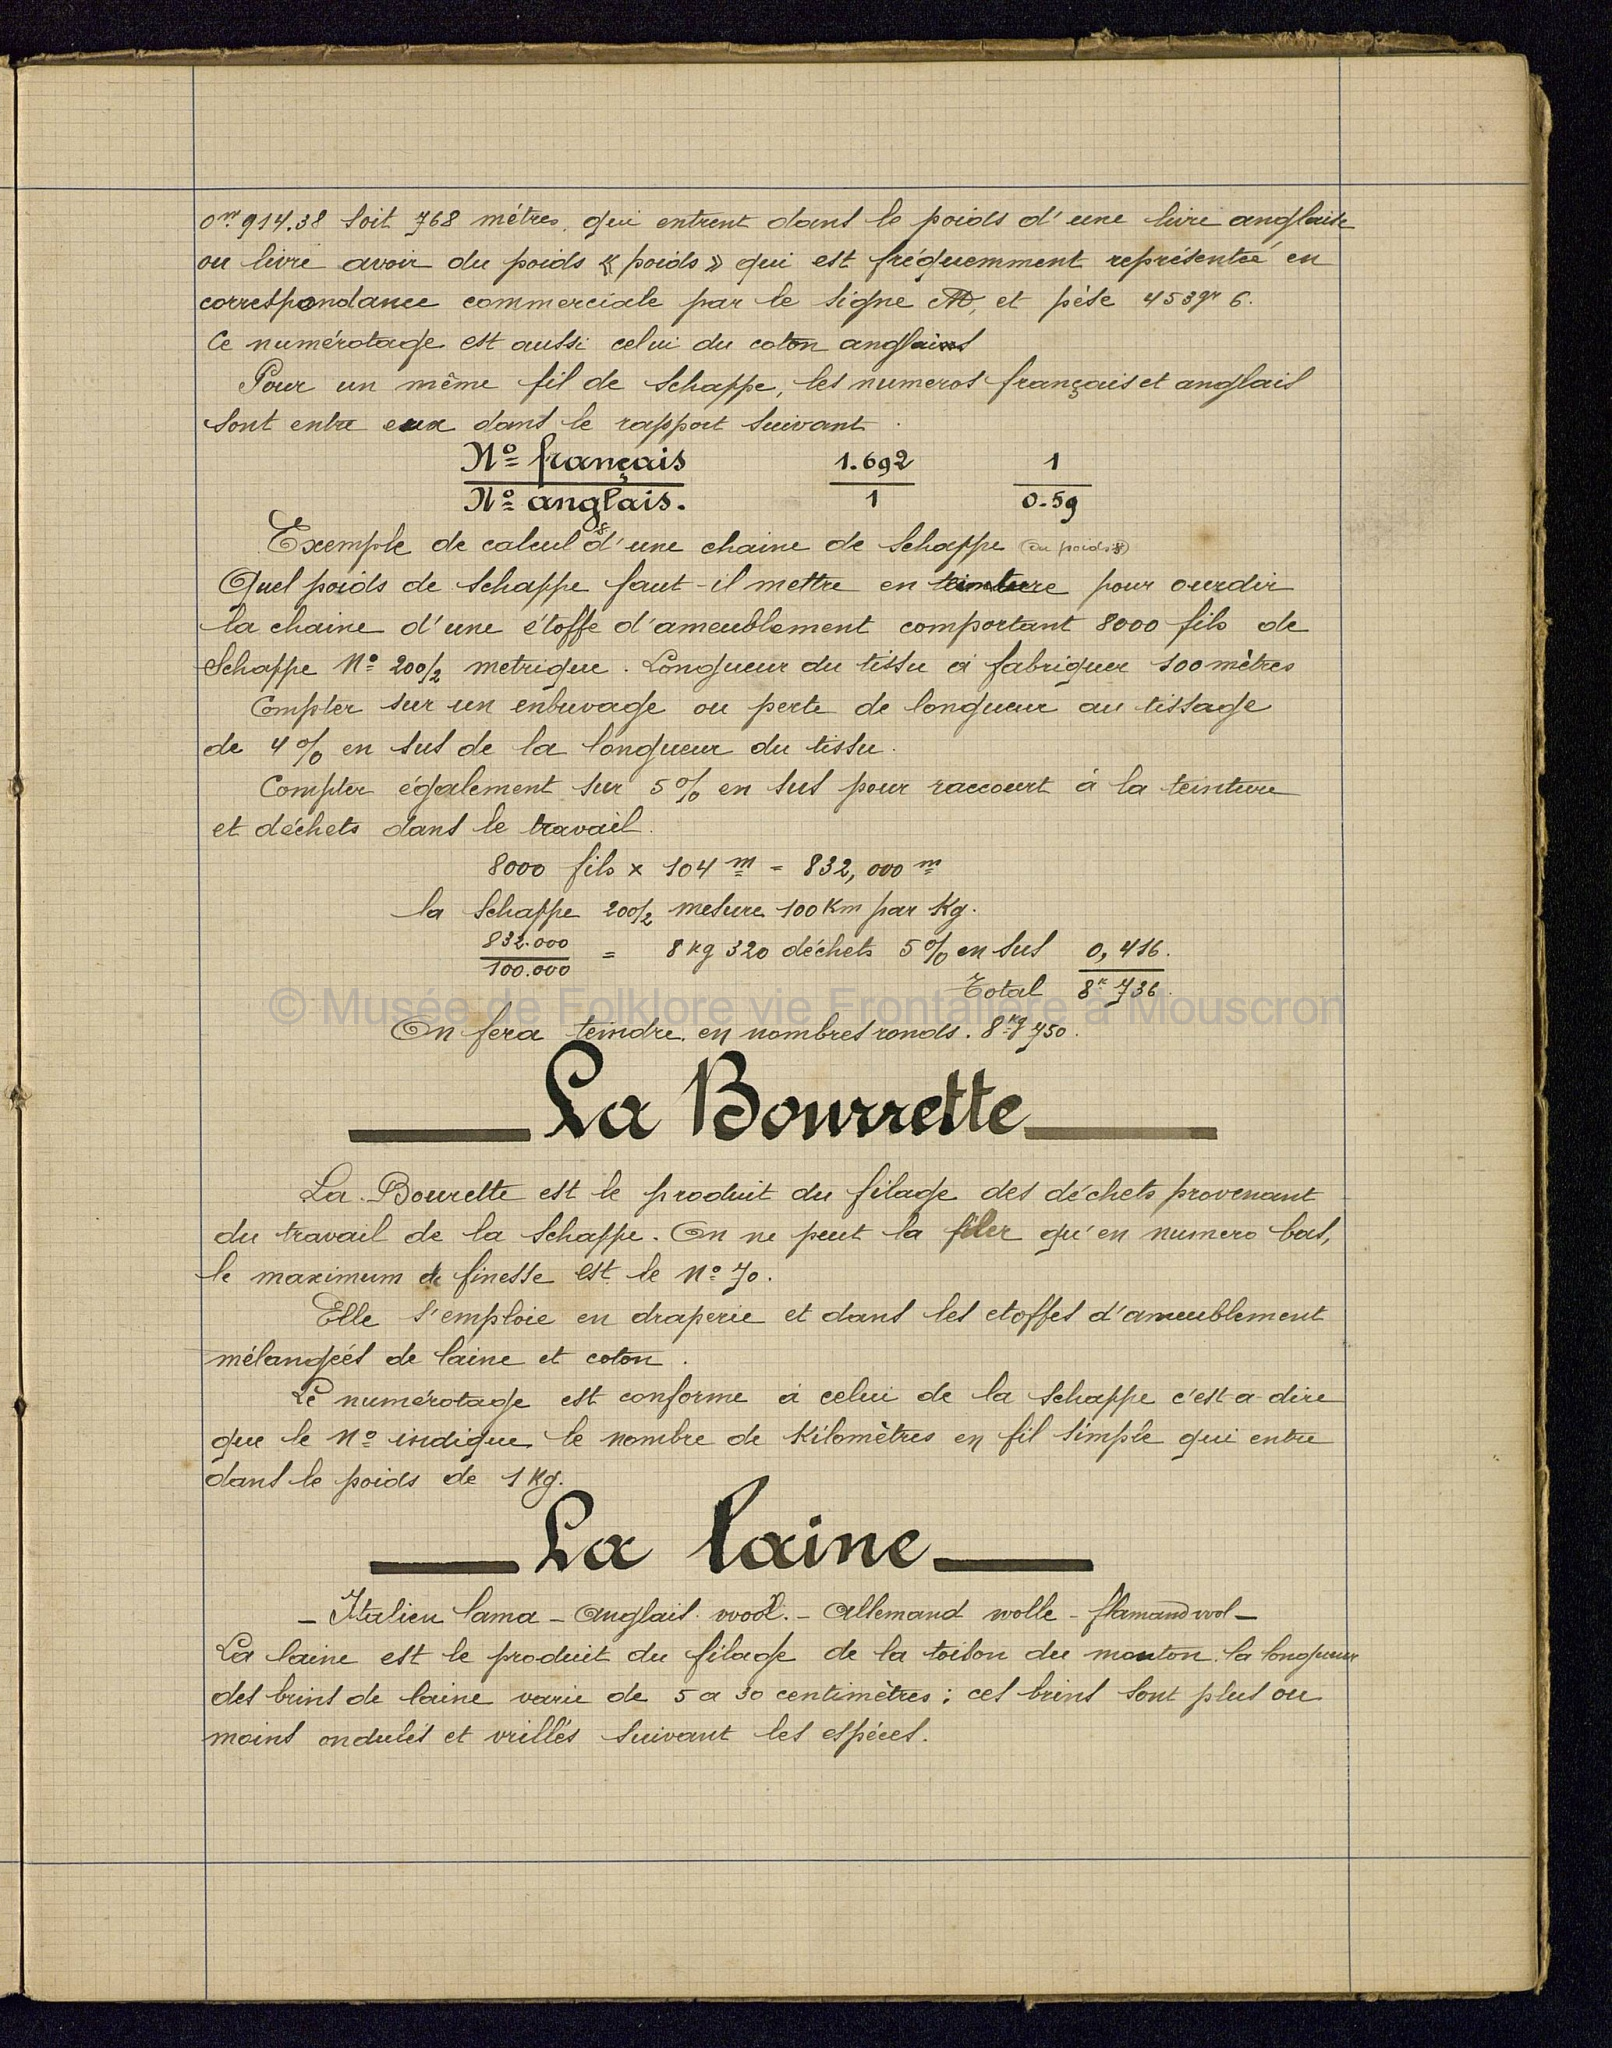 0m.914.38 soit 768 métres, qui entrent dans le poids d'une livre anglaise
ou livre avoir du poids « poids » qui est fréquemment représenteé en
correspondance commerciale par le signe et pèse 453gr 6.
Ce numérotage est aussi celui du coton anglais
Pour un même fil de schappe, les numeros français et anglais
sont entre eux dans le rapport suivant.
Nº français 1.692 1
Nº anglais. 1 0.59
Exemple de calcul d'une chaine de schappe (du poids)
Quel poids de schappe faut-il mettre en teinture pour ourdir
la chaine d'une étoffe d'ameublement comportant 8000 fils de
Schappe Nº 200/2 metrique. Longueur du tissu à fabriquer 100 mètres
Compter sur un enbuvage ou perte de longueur au tissage
de 4% en sus de la longueur du tissu.
Compter également sur 5% en sus pour raccourt à la teinture
et déchets dans le travail.
8000 fils x 104 m = 832,000 m
la schappe 200/2 mesure 100 Km par Kg.
832.000 / 100.000 = 8 kg 320 déchets 5% en sus 0,416.
Total 8k 736.
© Musée de Folklore vie Frontalière à Mouscron
On fera teindre en nombres ronds. 8kg 750.
La Bourrette
La Bourette est le produit du filage des déchets provenant
du travail de la schappe. On ne peut la filer qu'en numero bas,
le maximum de finesse est le Nº 70.
Elle s'emploie en draperie et dans les etoffes d'ameublement
mélangeés de laine et coton.
Le numérotage est conforme à celui de la schappe c'est-a-dire
que le Nº indique le nombre de Kilomètres en fil simple qui entre
dans le poids de 1 Kg.
La laine
- Italien lama - Anglais wool. - Allemand wolle - flamand wol -
La laine est le produit du filage de la toison du mouton. la longueur
des brins de laine varie de 5 a 30 centimètres ; ces brins sont plus ou
moins ondulés et vrillés suivant les espéces.